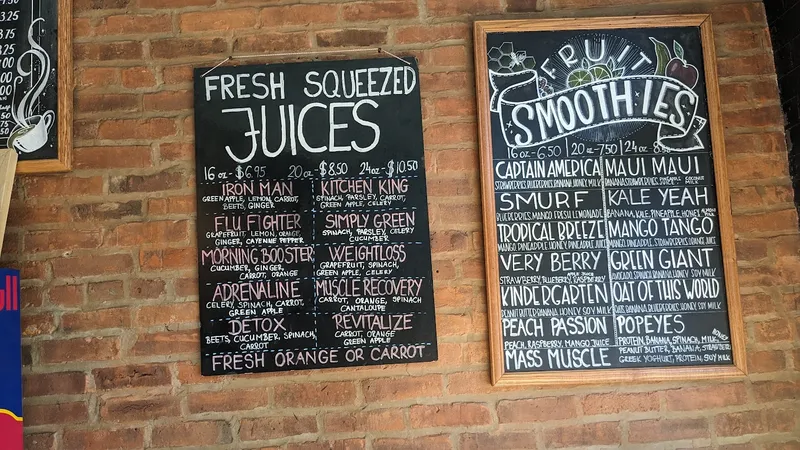 3.25
3.75
FRESH SQUEEZED
JUICES
16 oz-$6.95 20 oz $8.50 24 oz-$10.50
IRON MAN
GREEN APPLE, LEMON, CARROT,
BEETS, GINGER
KITCHEN KING
SPINACH, PARSLEY, CARROT,
GREEN APPLE, CELERY
FLU FIGHTER
GRAPEFRUIT, LEMON, ORANGE,
GINGER, CAYENNE PEPPER
SIMPLY GREEN
SPINACH, PARSLEY, CELERY
CUCUMBER
MORNING BOOSTER
CUCUMBER, GINGER,
CARROT, ORANGE
WEIGHTLOSS
GRAPEFRUIT, SPINACH,
GREEN APPLE, CELERY
ADRENALINE
CELERY, SPINACH, CARROT,
GREEN APPLE
MUSCLE RECOVERY
CARROT, ORANGE, SPINACH
CANTALOUPE
DETOX
BEETS, CUCUMBER, SPINACH,
CARROT
REVITALIZE
CARROT, ORANGE
GREEN APPLE
FRESH ORANGE OR CARROT
FRUIT
SMOOTHIES
16 oz-6.50 20 oz-7.50 24 oz-
CAPTAIN AMERICA
STRAWBERRIES, BLUEBERRIES, BANANA, HONEY, MILK
MAUI MAUI
BANANA, STRAWBERRIES, PINEAPPLE COCONUT MILK
SMURF
BLUEBERRIES, MANGO, FRESH LEMONADE
KALE YEAH
BANANA, KALE, PINEAPPLE, HONEY
TROPICAL BREEZE
MANGO, PINEAPPLE, HONEY, PINEAPPLE JUICE
MANGO TANGO
MANGO, PINEAPPLE, STRAWBERRIES,
VERY BERRY
STRAWBERRY, BLUEBERRY, RASPBERRY, APPLE JUICE
GREEN GIANT
AVOCADO, SPINACH, BANANA, HONEY, SOY MILK
KINDERGARTEN
PEANUT BUTTER, BANANA, HONEY, SOY MILK
OAT OF THIS WORLD
OATS, BANANA, BLUEBERRIES, HONEY, SOY MILK
PEACH PASSION
PEACH, RASPBERRY, MANGO JUICE
POPEYES
PROTEIN, BANANA, SPINACH, MILK, HONEY
MASS MUSCLE
PEANUT BUTTER, BANANA,
GREEK YOGHURT, PROTEIN, SOY MILK